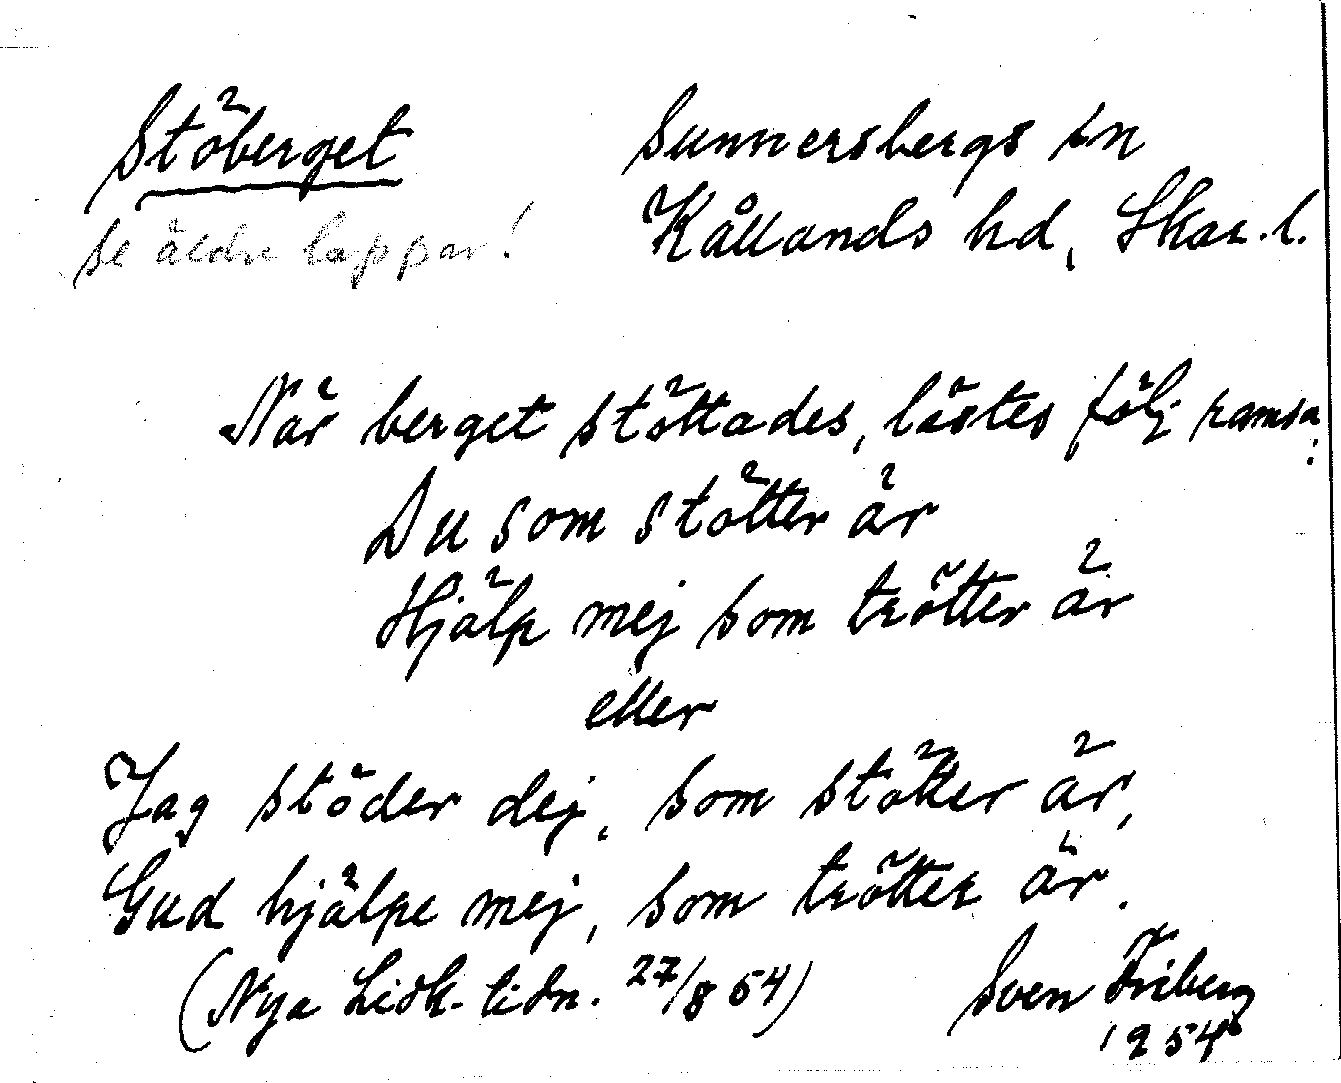 Stöberget
Sunnersbergs sn
Kållands hd, Skar. l.
se äldre lappar!
När berget stöttades, lästes följ ramsa:
Du som stötter är
Hjälp mej som trötter är
eller
Jag stöder dej, som stötter är,
Gud hjälpe mej, som trötter är.
(Nya Lidk. tidn. 27/8 54)
Sven Friberg
1954